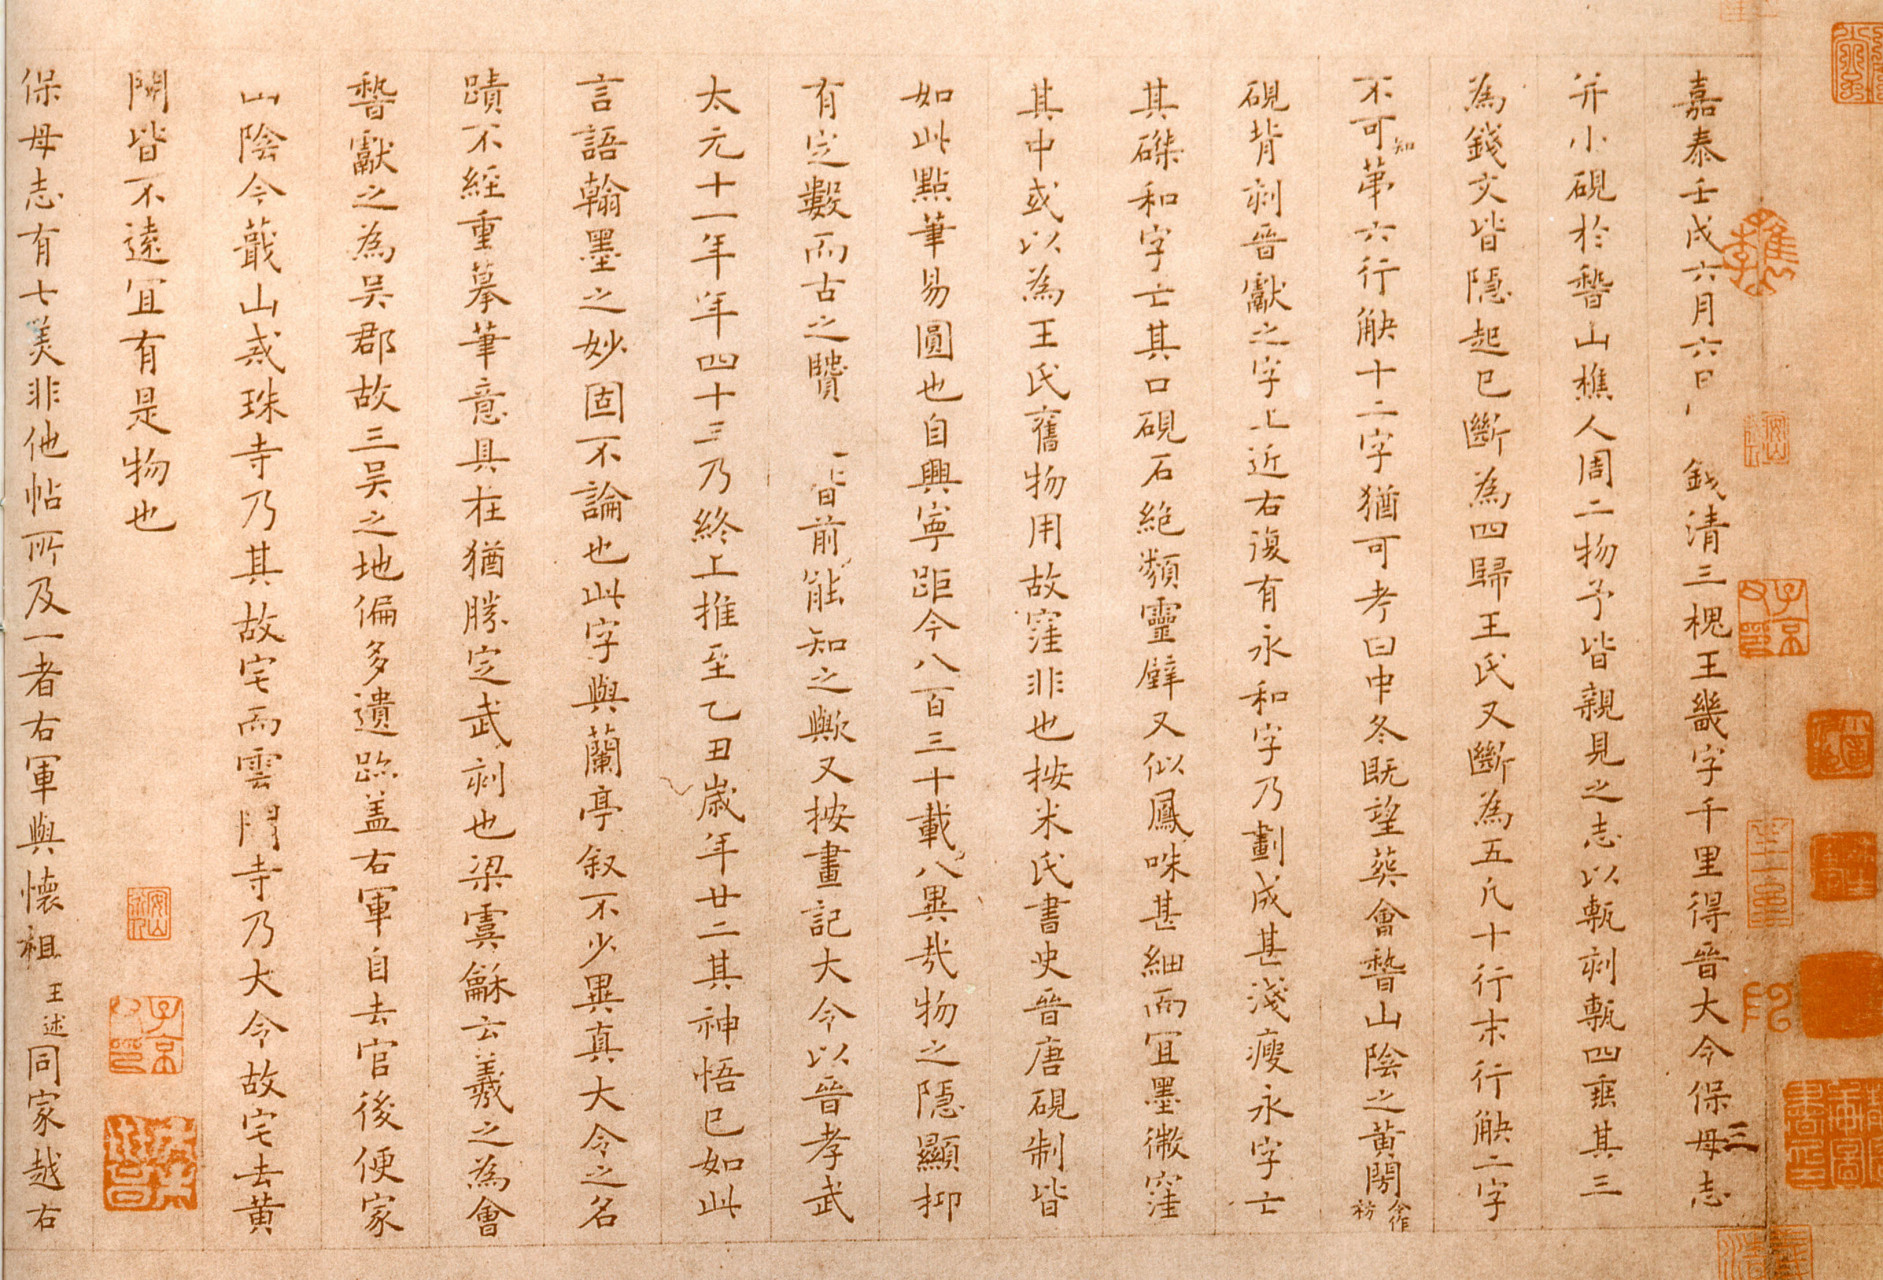 嘉泰壬戌六月六日 錢清三槐王畿字千里得晉大令保母志
并小硯於稽山樵人周二物予皆親見之志以甎刻甎四垂其三
為錢文皆隱起已斷為四歸王氏又斷為五凡十行末行觖二字
不可知苐六行觖十二字猶可考曰中冬既望葬會稽山陰之黃閍今作祊
硯背刻晉獻之字上近右復有永和字乃劃成甚淺瘦永字亡
其磔和字亡其口硯石絶類靈璧又似鳳咮甚細而宜墨微窪
其中或以為王氏舊物用故窪非也按米氏書史晉唐硯制皆
如此點筆易圓也自興寧距今八百三十載異哉物之隱顯抑
有定數而古之贒 皆前能知之歟又按畫記大令以晉孝武
太元十一年年四十三乃終上推至乙丑歲年廿二其神悟已如此
言語翰墨之妙固不論也此字與蘭亭叙不少異真大令之名
蹟不經重摹筆意具在猶勝定武刻也梁虞龢云羲之為會
稽獻之為吳郡故三吳之地偏多遺跡盖右軍自去官後便家
山陰今蕺山戒珠寺乃其故宅而雲門寺乃大令故宅去黃
閍皆不遠宜有是物也
保母志有七美非他帖所及一者右軍與懷祖王述同家越右
三